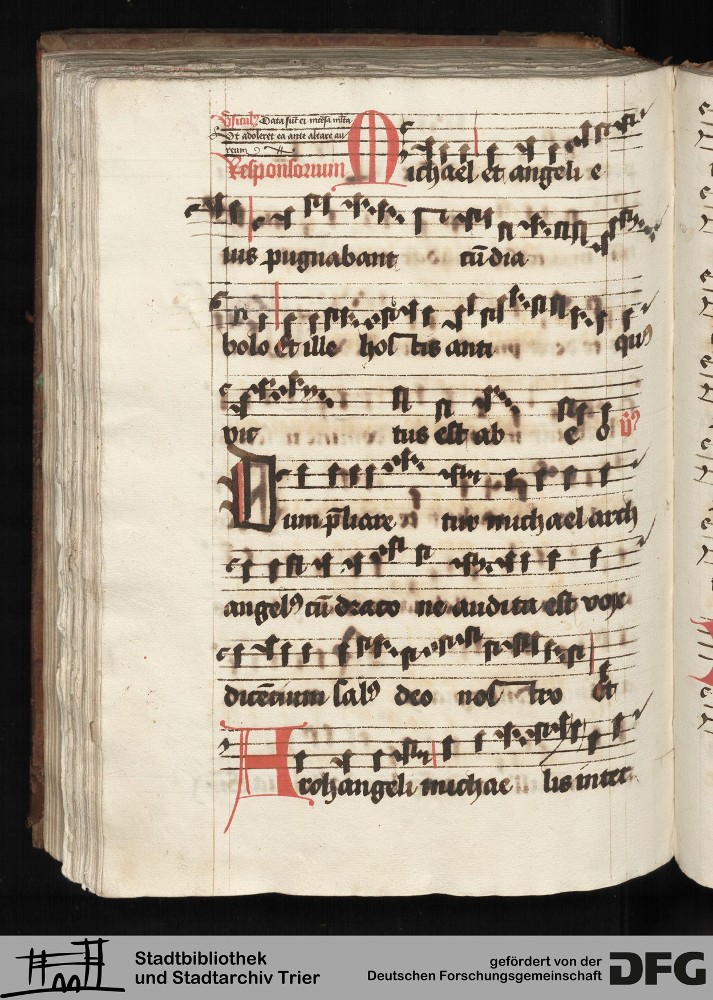 Data sūt ei incēsa mlta
Ut adoleret ea ante altare au
reum
Responsorium Michael et angeli e
ius pugnabant cū dia
bolo Et ille hostis anti quꝰ
vic tus est ab e o
Dum p̄liare tur michael arch
angelꝰ cū draco ne audita est vox
dicētium salꝰ deo nostro Et
Archangeli michae lis inter
Stadtbibliothek
und Stadtarchiv Trier
gefördert von der
Deutschen Forschungsgemeinschaft DFG